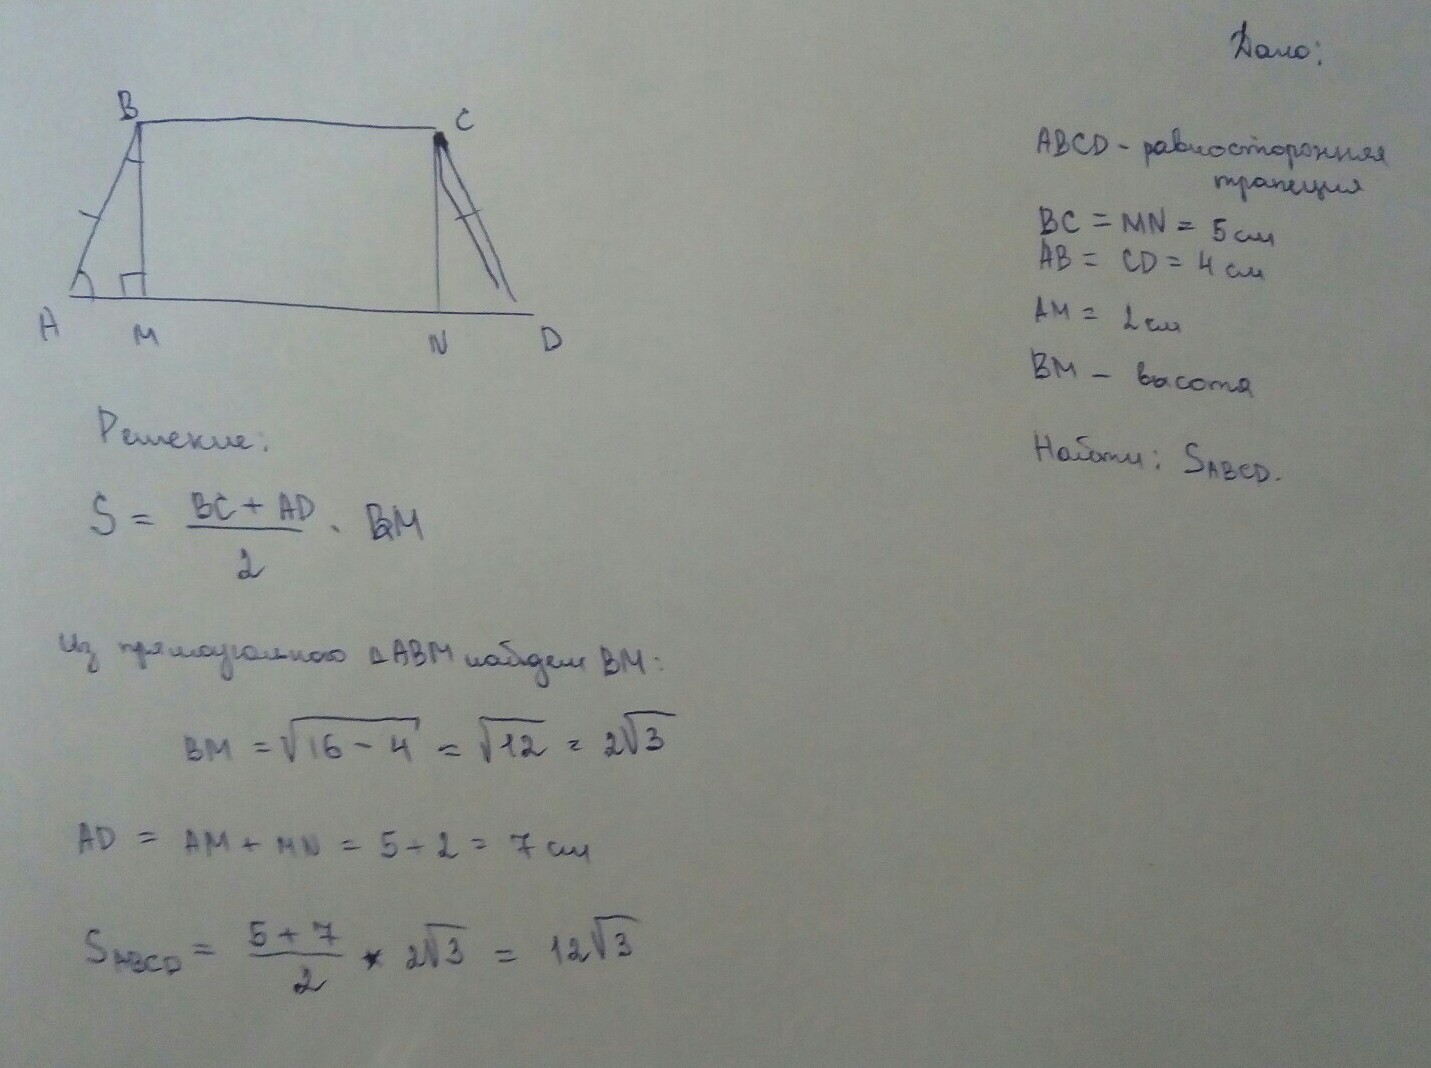 Дано:
B
C
A
M
N
D
ABCD - равносторонняя
трапеция
BC = MN = 5 см
AB = CD = 4 см
AM = 2 см
BM - высота
Найти: S_ABCD.
Решение:
S = (BC + AD)/2 · BM
Из прямоугольного ΔABM найдем BM:
BM = √(16 - 4) = √12 = 2√3
AD = AM + MN = 5 + 2 = 7 см
S_ABCD = (5 + 7)/2 * 2√3 = 12√3